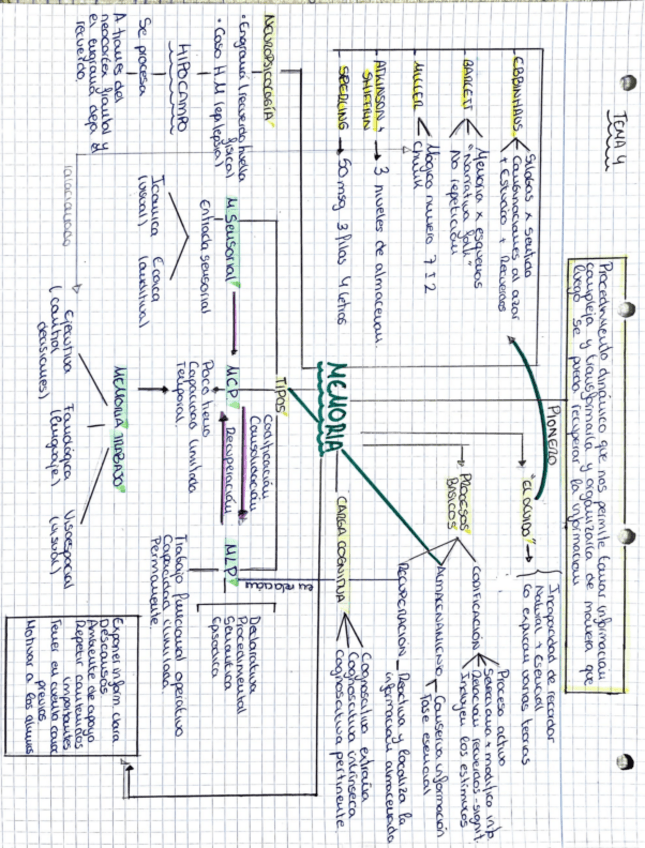 TEMA 4
Procedimiento dinámico que nos permite tomar información
compleja y transformarla y organizarla de manera que
luego se pueda recuperar la información
PIONERO
EBBINHAUS
Sílabas x sentido
Combinaciones al azar
+ Estudio + Recuerdos
BARLETT
Memoria x esquemas
"Narrativa folk"
No repetición
MILLER
Mágico número 7 ± 2
Chunk
ATKINSON y
SHIFFRIN
3 niveles de almacenam.
SPERLING
50 msg 3 filas 4 letras
"EL OLVIDO"
Incapacidad de recordar
Natural + Esencial
Lo explican varias teorías
PROCESOS
BÁSICOS
CODIFICACIÓN
Proceso activo
Selecciona + modifica info
Relacion recuerdos-signif.
Influyen los estímulos
ALMACENAMIENTO
Conserva información
Fase esencial
RECUPERACIÓN
Reactiva y localiza la
información almacenada
MEMORIA
CARGA COGNITIVA
Cognoscitiva extraña
Cognoscitiva intrínseca
Cognoscitiva pertinente
NEUROPSICOLOGÍA
• Engrama (recuerdo huella
física)
• Caso H.M (epilepsia)
HIPOCAMPO
Se procesa
A través del
neocórtex frontal y
el engrama deja el
recuerdo
TIPOS
M Sensorial
Entrada sensorial
Icónica
(visual)
Ecoica
(auditiva)
MCP
Poco tiempo
Capacidad limitada
Temporal
Codificación
Consolidación
Recuperación
MLP
en relación
Declarativa
Procedimental
Semántica
Episódica
Trabajo funcional operativo
Capacidad ilimitada
Permanente
MEMORIA TRABAJO
Ejecutiva
(control
decisiones)
Fonológica
(lenguaje)
Visoespacial
(visual)
Exponer inform. clara
Descansos
Ambiente de apoyo
Repetir contenidos
importantes
Tener en cuenta conoc
previos
Motivar a los alumnos